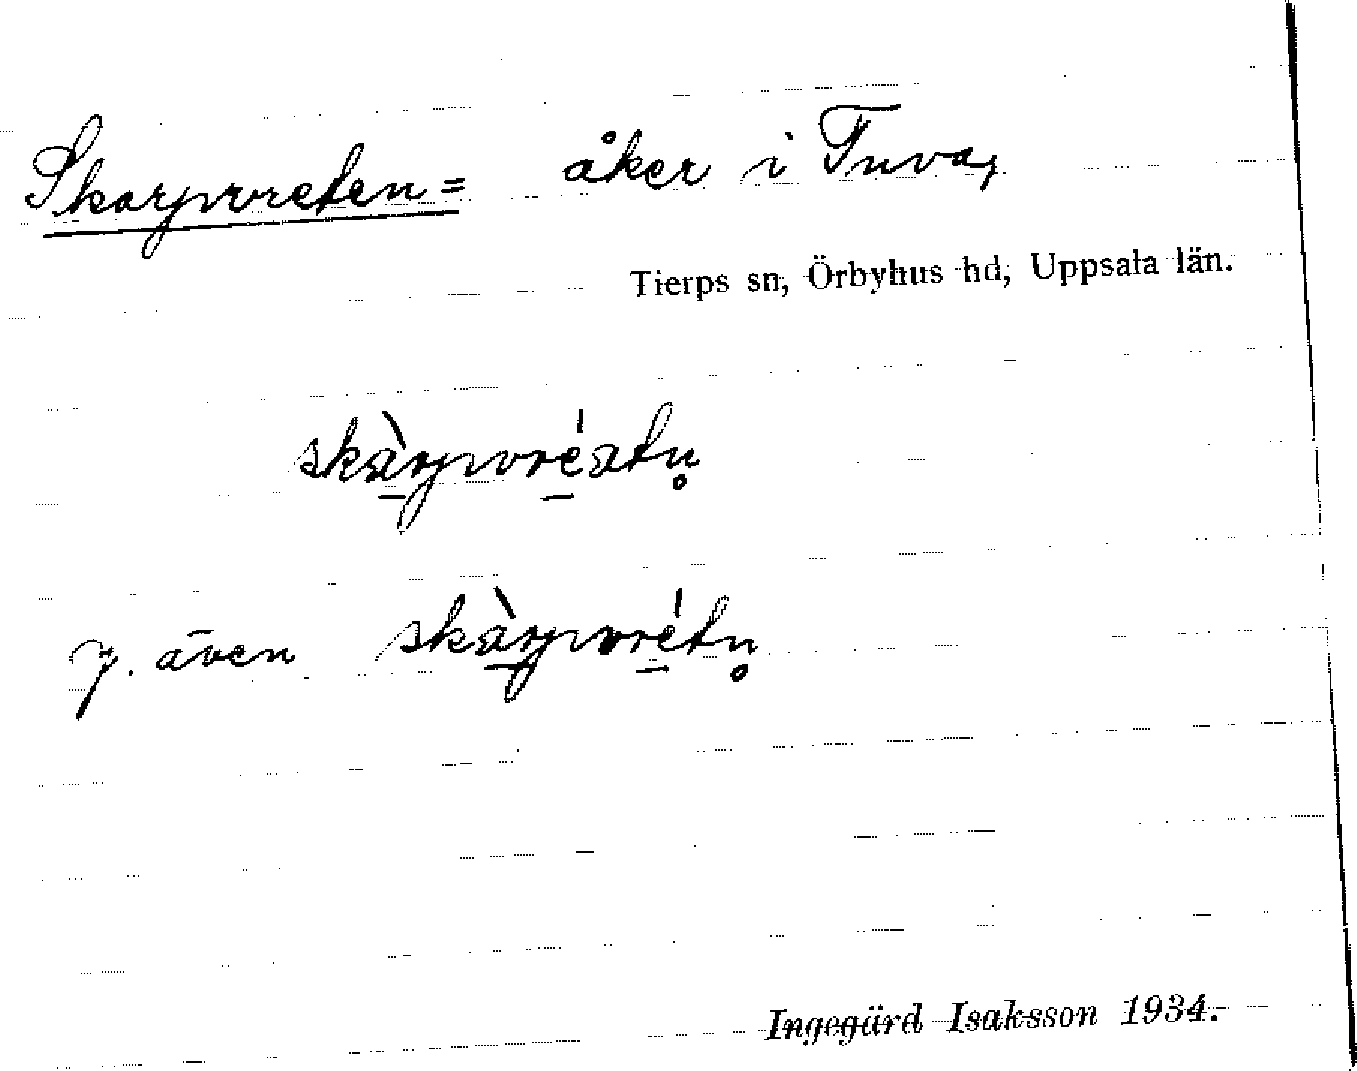 Skarpvreten = åker i Tuva,
Tierps sn, Örbyhus hd, Uppsala län.
skàrpvréatn̥
y. även skàrpvrétn̥
Ingegärd Isaksson 1934.